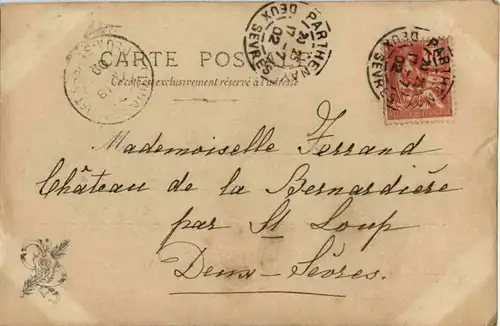 CARTE POSTALE
Ce côté est exclusivement réservé à l'adresse
PARTHENAY
DEUX SÈVRES
02
PARTHENAY
DEUX SÈVRES
02
Mademoiselle Ferrand
Château de la Bernardière
par St Loup
Deux-Sèvres.